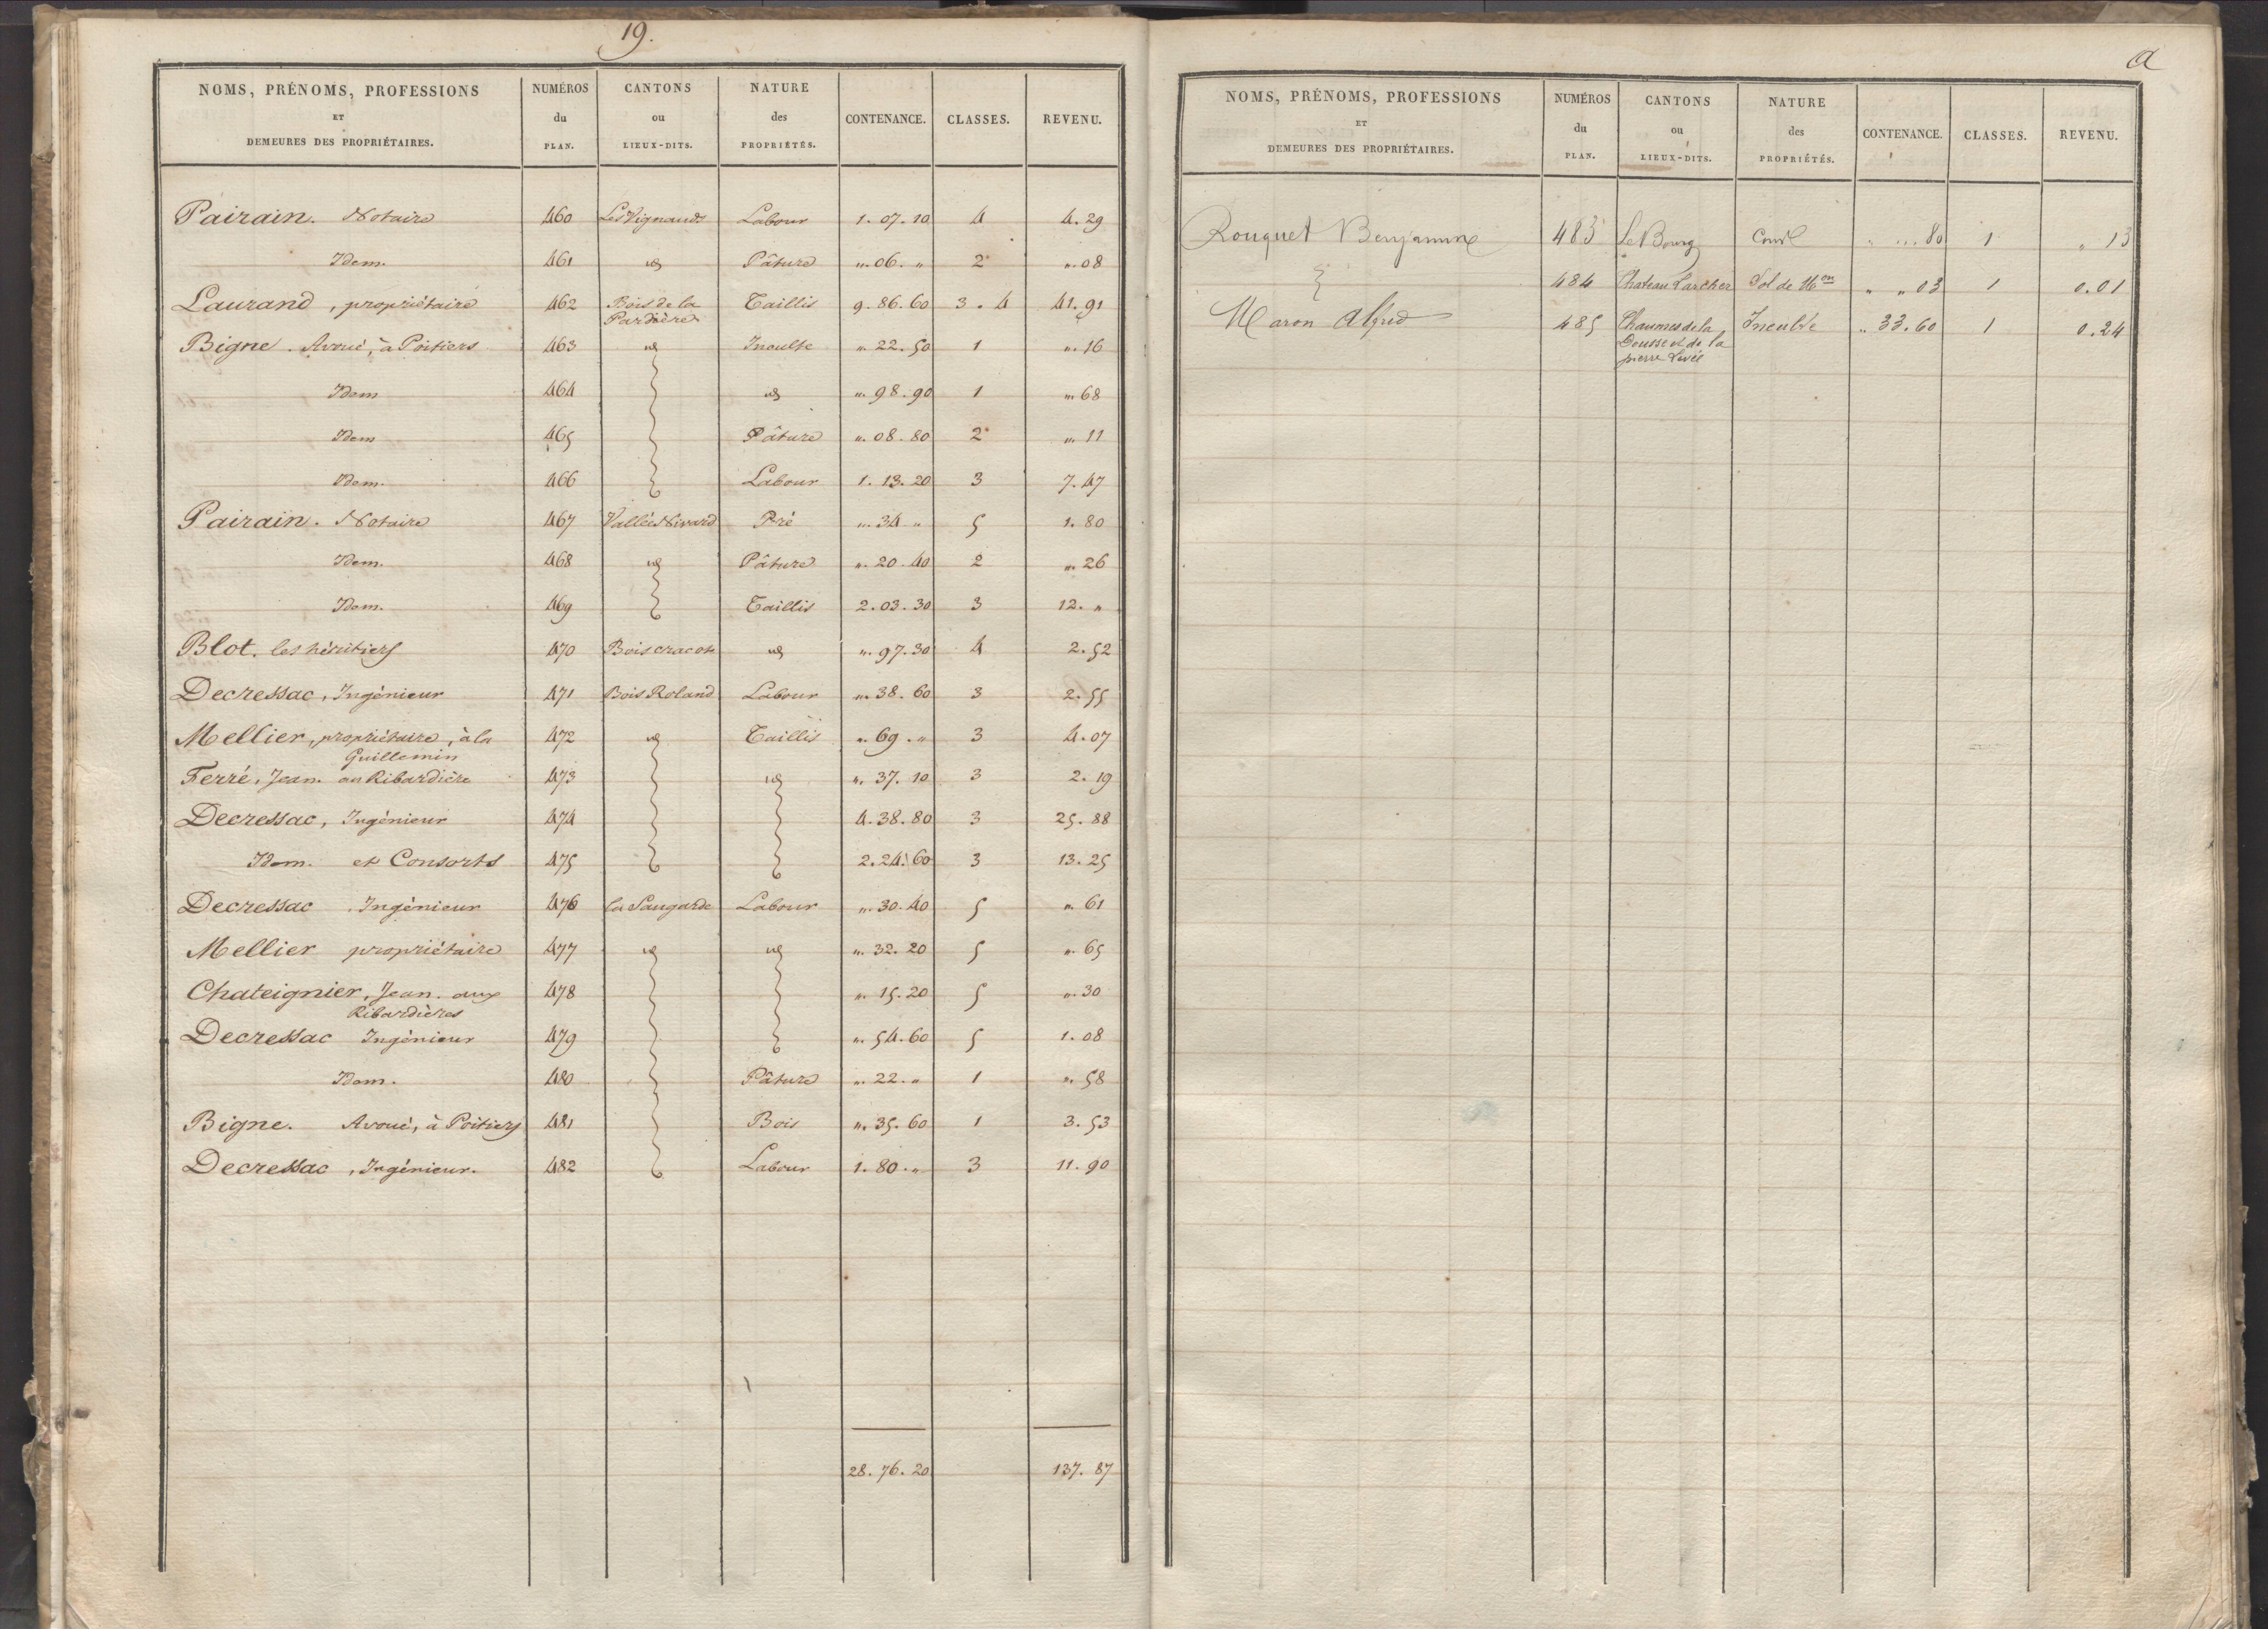 19.
NOMS, PRÉNOMS, PROFESSIONS ET DEMEURES DES PROPRIÉTAIRES. | NUMÉROS du PLAN. | CANTONS ou LIEUX-DITS. | NATURE des PROPRIÉTÉS. | CONTENANCE. | CLASSES. | REVENU.
Pairain. Notaire 460 Les Vignauds Labour 1. 07. 10 4 4. 29
Idem. 461 id Pâture „. 06. „ 2 „. 08
Laurand, propriétaire 462 Bois de la Taillis 9. 86. 60 3. 4 41. 91
Pardière
Bigne. Avoué, à Poitiers 463 id Inculte „. 22. 50 1 „. 16
Idem 464 id „. 98. 90 1 „. 68
Idem 465 Pâture „. 08. 80 2 „. 11
Idem. 466 Labour 1. 13. 20 3 7. 47
Pairain. Notaire 467 Vallée Nivard Pré „. 34 „ 5 1. 80
Idem. 468 id Pâture „. 20. 40 2 „. 26
Idem. 469 Taillis 2. 03. 30 3 12. „
Blot. les héritiers 470 Bois cracot id „. 97. 30 4 2. 52
Decressac, Ingénieur 471 Bois Roland Labour „. 38. 60 3 2. 55
Mellier, propriétaire, à la 472 id Taillis „. 69. „ 3 4. 07
Guillemin
Ferré, Jean. au Ribardière 473 id „. 37. 10 3 2. 19
Decressac, Ingénieur 474 4. 38. 80 3 25. 88
Idem. et Consorts 475 2. 24. 60 3 13. 25
Decressac, Ingénieur 476 la Saugarde Labour „. 30. 40 5 „. 61
Mellier propriétaire 477 id id „. 32. 20 5 „. 65
Chateignier, Jean. aux 478 „. 15. 20 5 „. 30
Ribardières
Decressac Ingénieur 479 „. 54. 60 5 1. 08
Idem. 480 Pâture „. 22. „ 1 „. 58
Bigne. Avoué, à Poitiers 481 Bois „. 35. 60 1 3. 53
Decressac, Ingénieur. 482 Labour 1. 80. „ 3 11. 90
28. 76. 20 137. 87
a
NOMS, PRÉNOMS, PROFESSIONS ET DEMEURES DES PROPRIÉTAIRES. | NUMÉROS du PLAN. | CANTONS ou LIEUX-DITS. | NATURE des PROPRIÉTÉS. | CONTENANCE. | CLASSES. | REVENU.
Rouquet Benjamin 483 Le Bourg Cour „ „. 80 1 „ 13
484 Chateau Larcher Sol de Mon „ „ 03 1 0. 01
Maron Alfred 485 Chaumes de la Inculte „ 33. 60 1 0. 24
Gousse et de la
pierre Levée